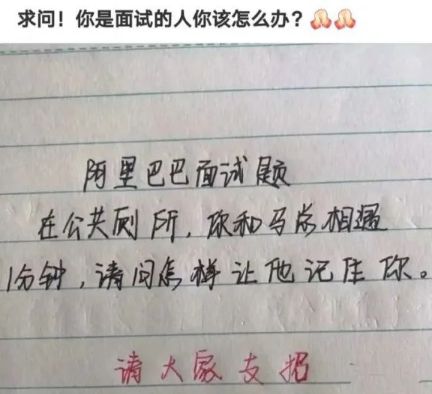 求问！你是面试的人你该怎么办？
阿里巴巴面试题
在公共厕所，你和马总相遇
1分钟，请问怎样让他记住你。
请大家支招